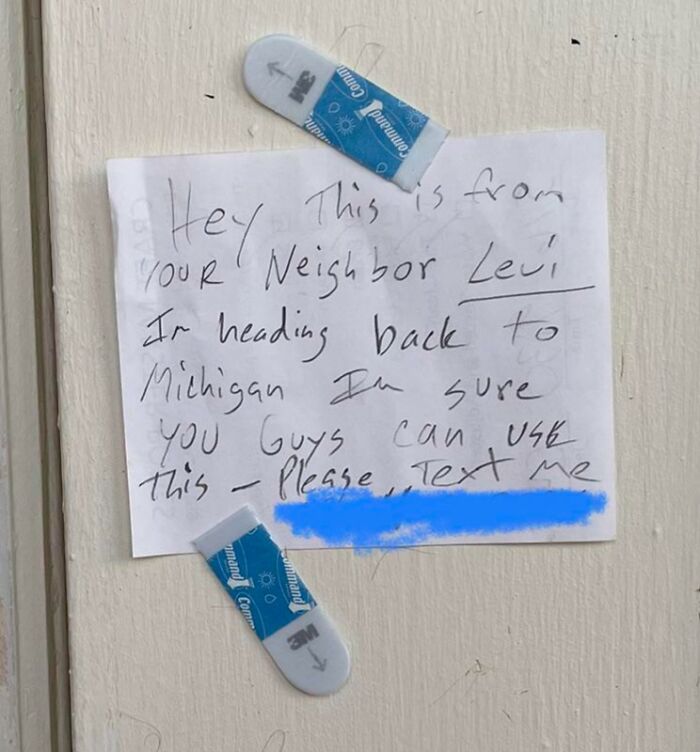 3M
Command
Command
Hey This is from
YOUR Neighbor Levi
Im heading back to
Michigan Im sure
YOU Guys can USE
this - Please, Text Me
Command
Command
3M